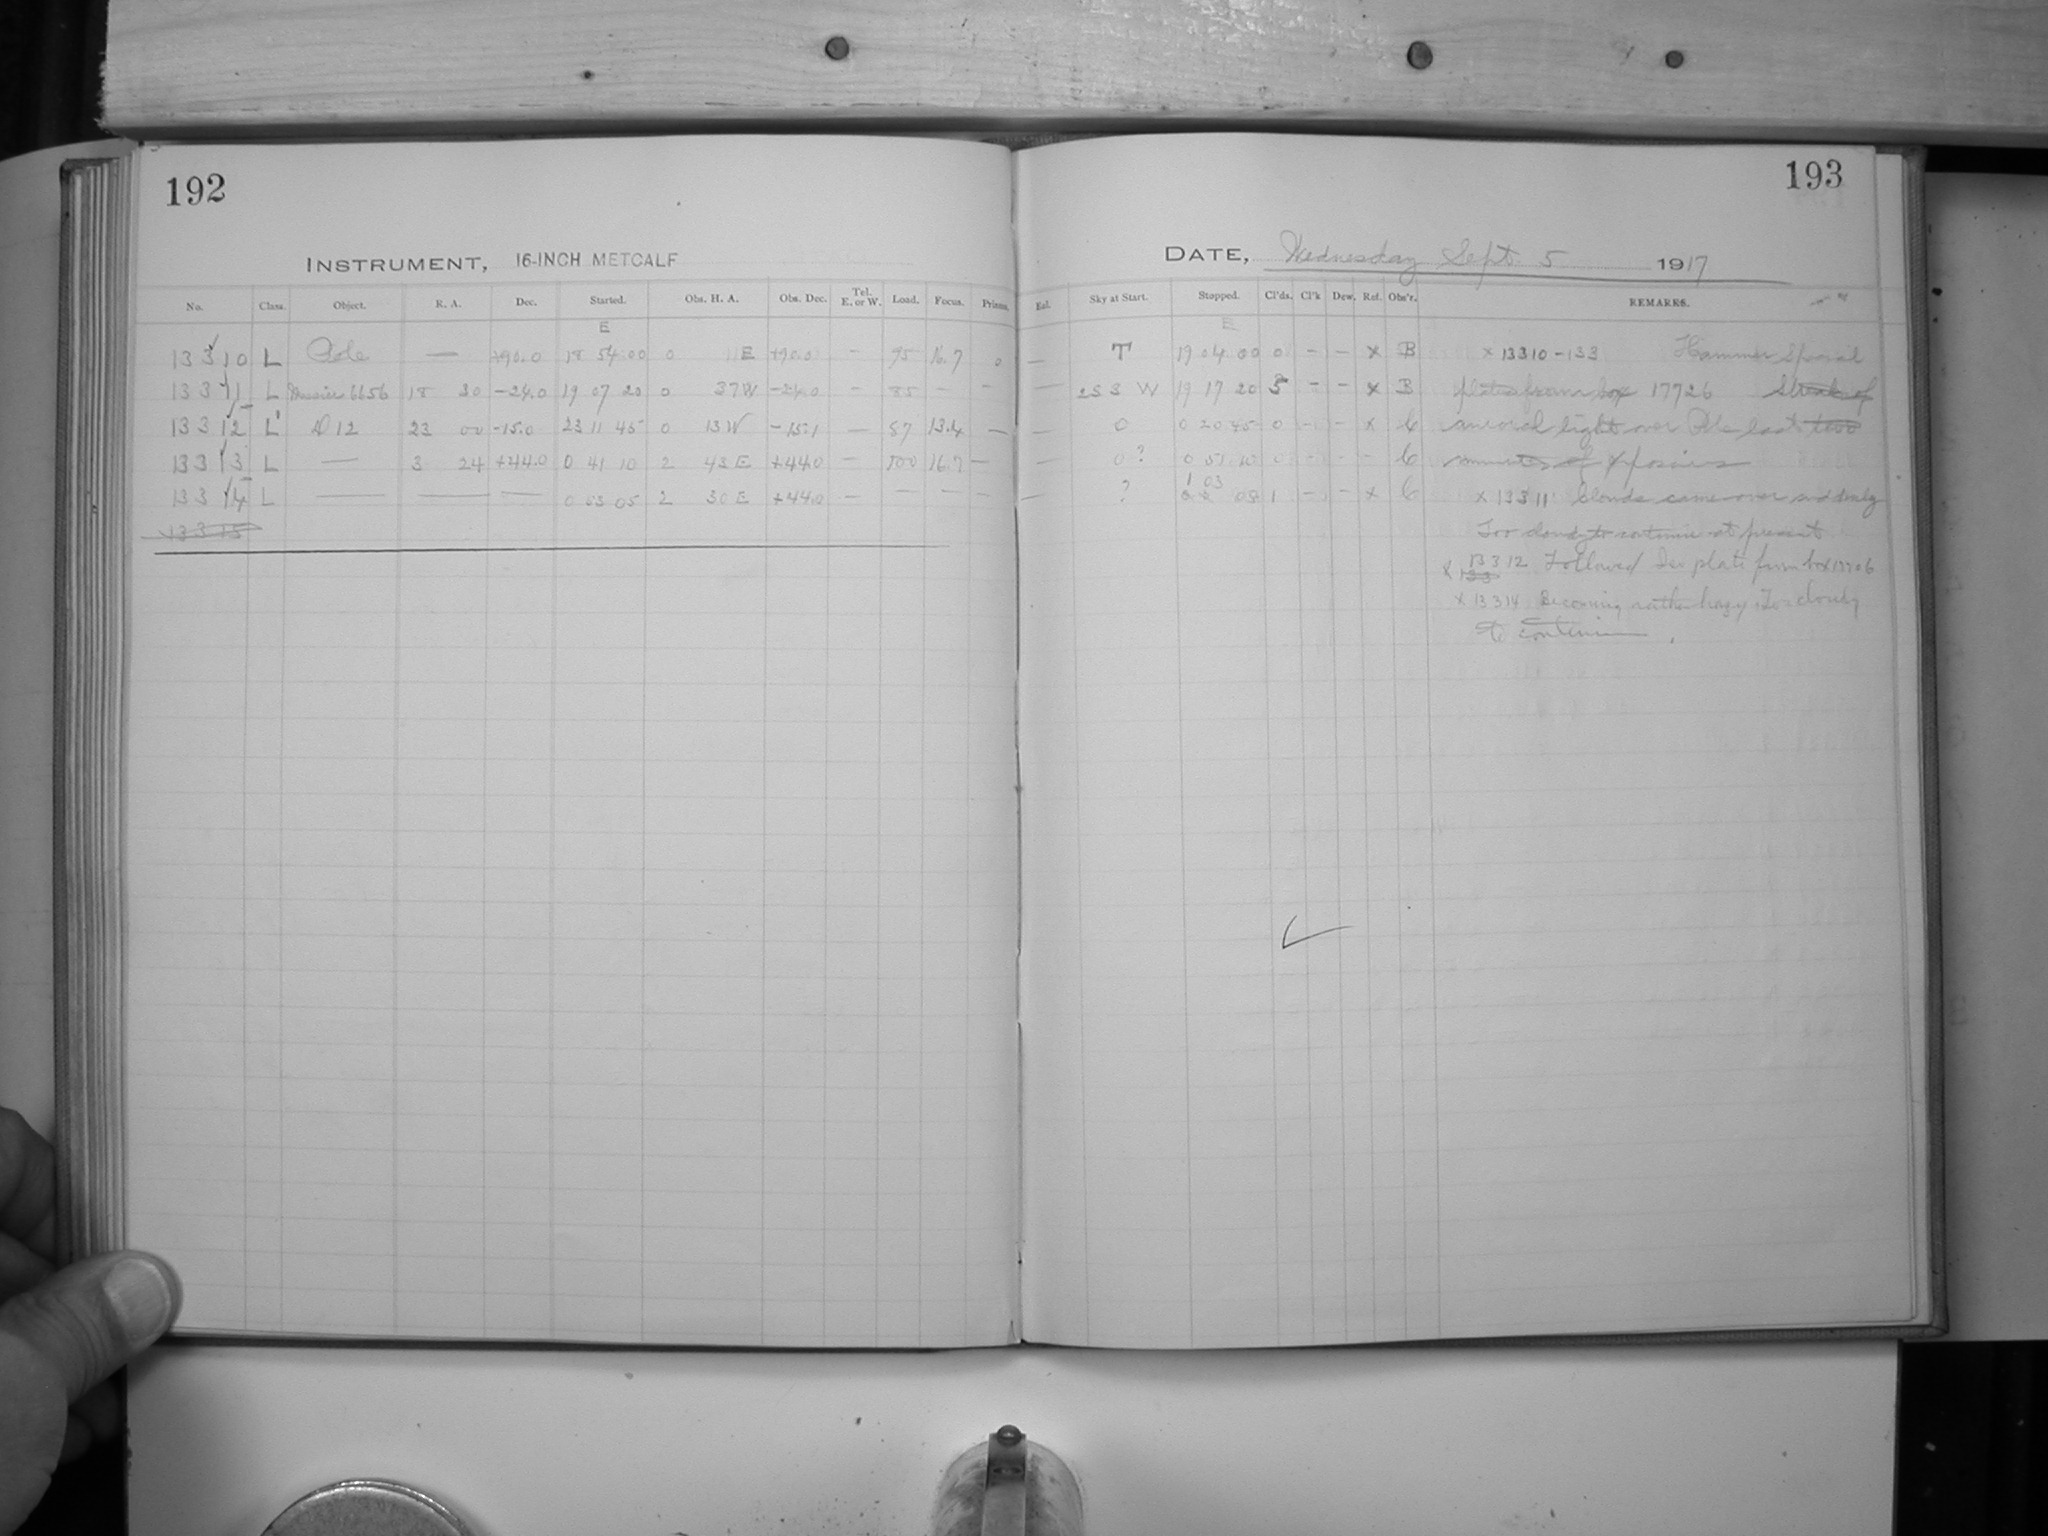 192
INSTRUMENT, 16-INCH METCALF
No. Class. Object. R. A. Dec. Started. Obs. H. A. Obs. Dec. Tel. E. or W. Load. Focus. Prisms.
E
13310 L Pole — +90.0 18 54 00 0 E +90.0 — 95 16.7 0
13311 L Messier 6656 18 30 -24.0 19 07 20 0 37W -24.0 — 85 — —
13312 L 12 23 00 -15.0 23 11 45 0 13W -15.1 — 87 13.4 —
13313 L — 3 24 +44.0 0 41 10 2 43E +44.0 — 100 16.7 —
13314 L — — — 0 53 05 2 30E +44.0 — — — —
13315
193
DATE, Wednesday Sept. 5 1917
Eal. Sky at Start. Stopped. Cl'ds. Cl'k Dew. Ref. Obs'r. REMARKS.
E
— T 19 04 00 0 - - x B x 13310-133 Hammer Special
— 2S3 W 19 17 20 5 - - x B plates from box 17726 Streak of
— 0 0 20 45 0 - - x C auroral light over Pole last two
— 0? 0 51 10 0 - - - C minutes of
— ? 1 03 08 1 - - x C x 13311 Clouds came over suddenly
Too cloudy to continue at present
x 13312 Followed Iso plate from box 17706
133
x 13314 Becoming rather hazy. Too cloudy
to continue.